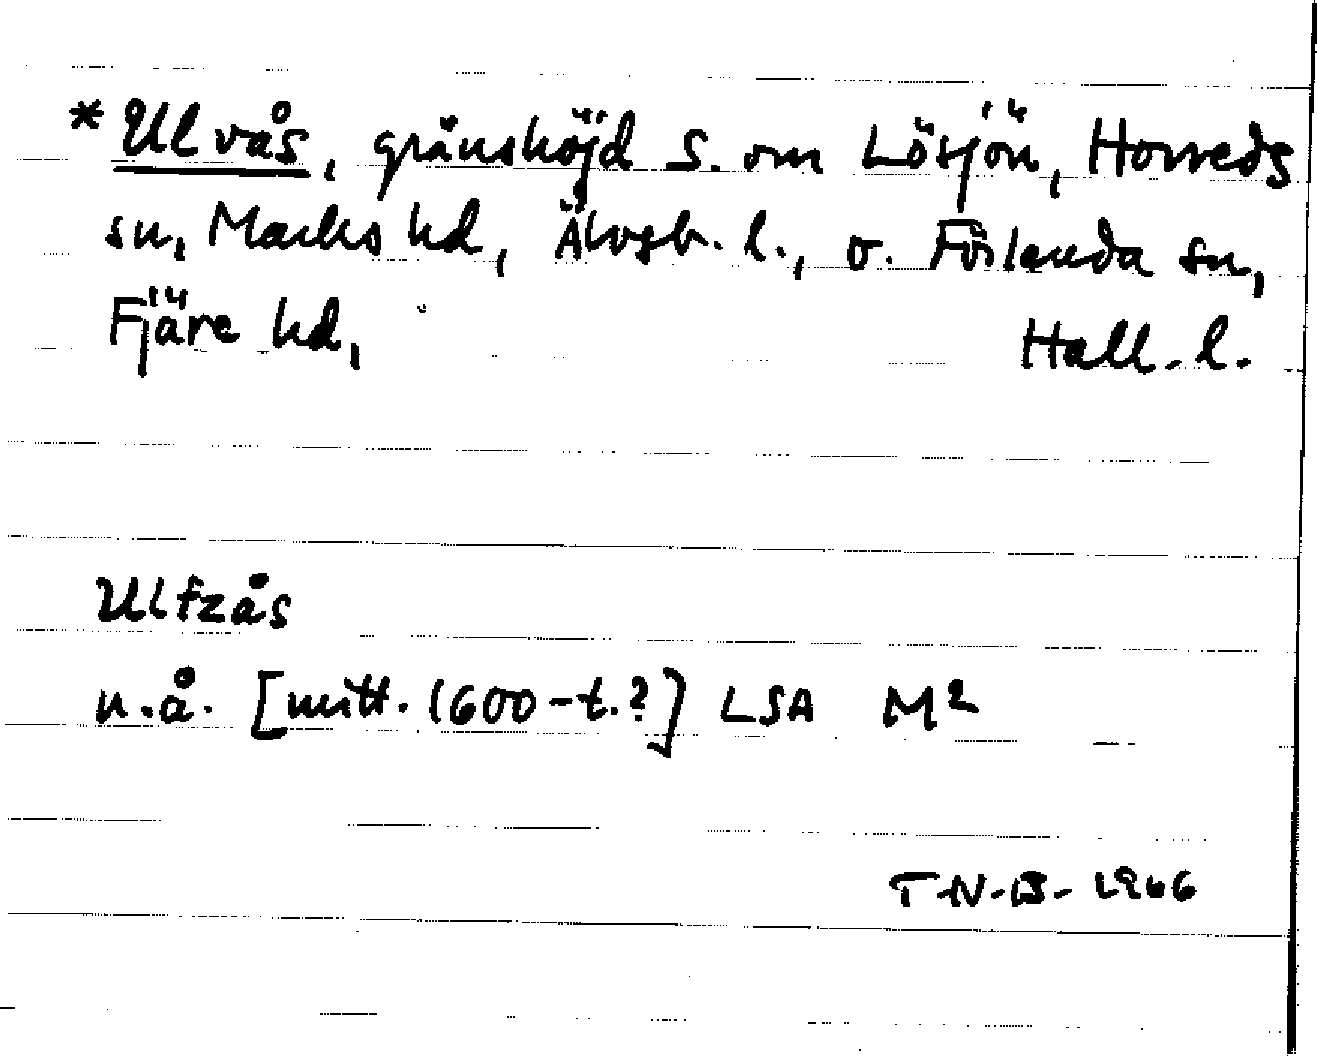 *Ulvås, gränshöjd S. om Lösjön, Horreds
sn, Marks hd, Älvsb. l., o. Förlanda sn,
Fjäre hd, Hall. l.
Ulfzås
n.å. [mitt. 1600-t.?] LSA M2
T-N-B- 1966